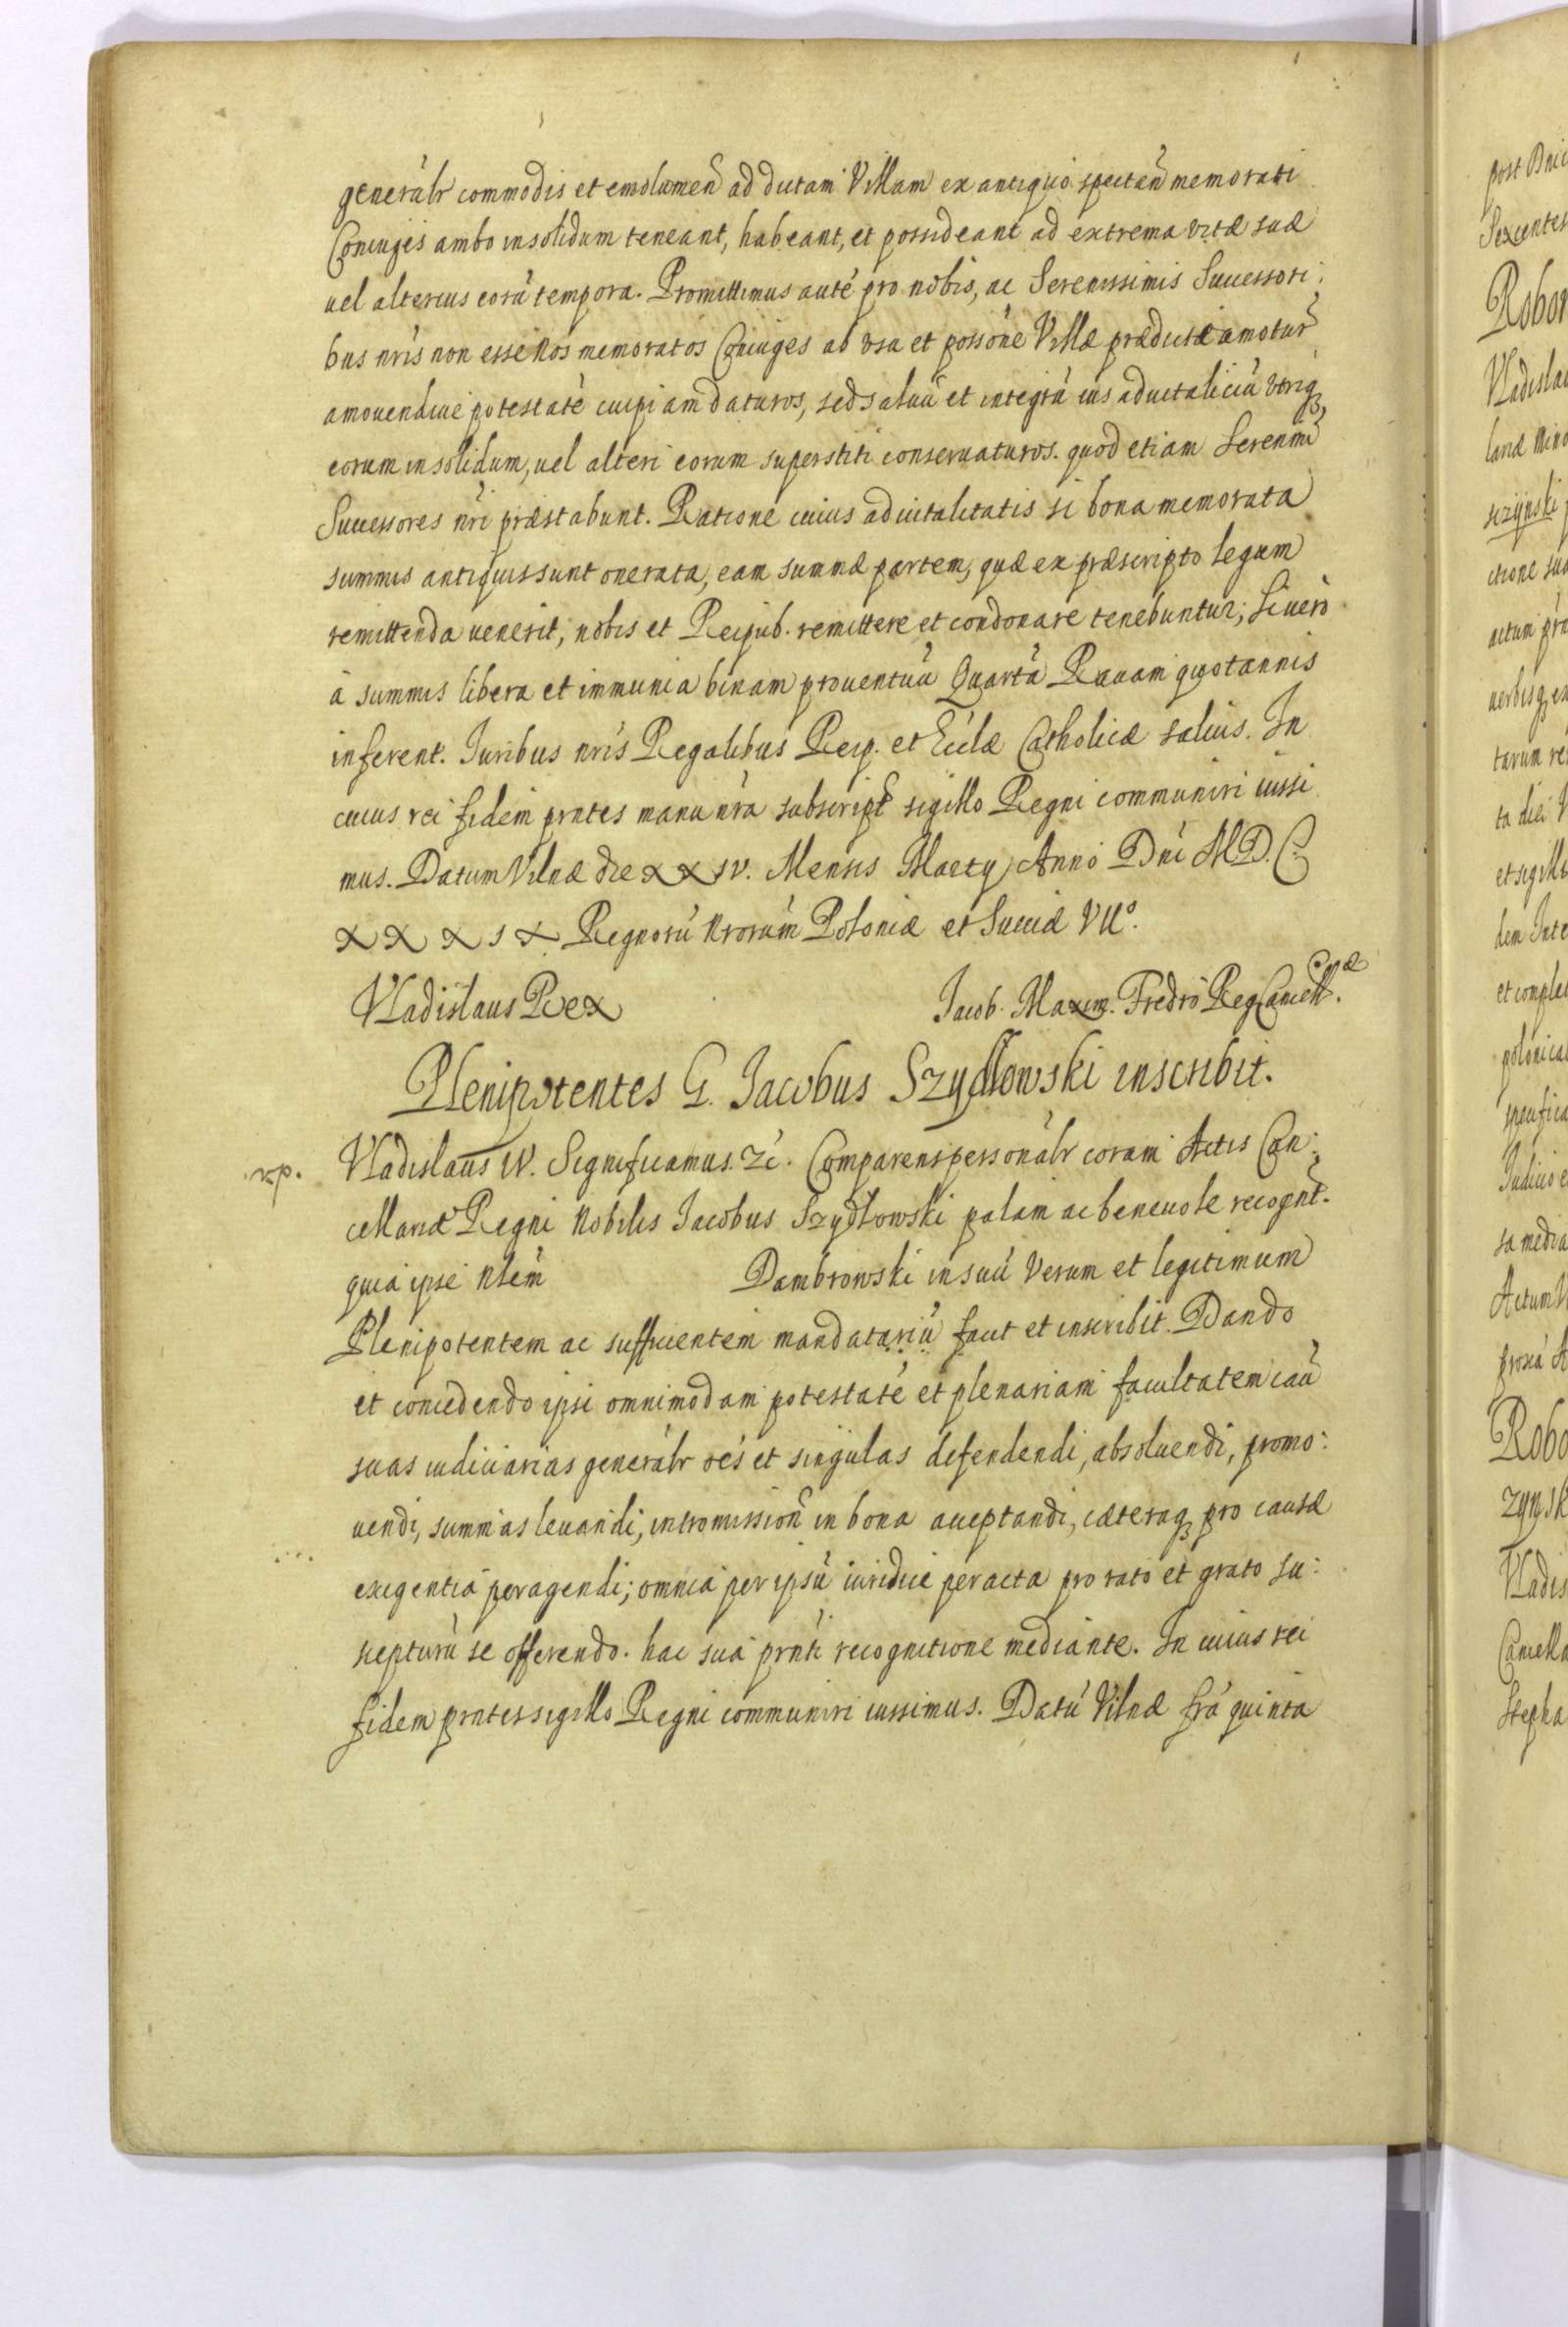 generalr commodis et emolumen ad dictam Villam ex antiquo spectan memorati
Coniuges ambo insolidum teneant, habeant, et possideant ad extrema vitæ suæ
uel alterius eorũ tempora. Promittimus autẽ pro nobis, ac Serenissimis Successori:
bus nrĩs non esse Nos memoratos Coniuges ab vsu et possõne Villæ prædictæ amotur̃
amouendiue potestatẽ cuipiam daturos, sed saluũ et integrũ ius aduitaliciũ vtriq3
eorum insolidum, uel alteri eorum superstiti conseruaturos. quod etiam Serenmĩ
Successores nrĩ præstabunt. Ratione cuius aduitalitatis si bona memorata
summis antiquis sunt onerata, eam summæ partem, quæ ex præscripto legum
remittenda uenerit, nobis et Reipub. remittere et condonare tenebuntur; Si uero
à summis libera et immunia binam prouentuũ Quartã Rauam quotannis
inferent. Iuribus nrĩs Regalibus Reip. et Ecclæ Catholicæ saluis. In
cuius rei fidem prntes manu nrã subscript̃ sigillo Regni communiri iussi
mus. Datum Vilnæ die XXIV. Mensis Martij Anno Dni M.D.C
XXXIX Regnorũ Nrorũm Poloniæ et Sueciæ VIIº.
Vladislaus Rex
Jacob. Maxim. Fredro Reg Cancell.æ
Plenipotentes G. Jacobus Szydłowski inscribit.
rp. Vladislaus IV. Significamus. &c. Comparens personalr coram Actis Can:
cellariæ Regni Nobilis Jacobus Szydłowski palam ac beneuole recognt̃.
quia ipse Nlẽm Dambrowski in suũ Verum et legitimum
Plenipotentem ac sufficientem mandatariũ facit et inscribit. Dando
et concedendo ipsi omnimodam potestatẽ et plenariam facultatem caũ
suas iudiciarias generalr oẽs et singulas defendendi, absoluendi, promo:
uendi, summas leuandi, intromissioñ in bona acceptandi, cæteraq3 pro causæ
exigentia peragendi; omnia per ipsũ iuridice peracta pro rato et grato su:
scepturũ se offerendo. hac sua prnti recognitione mediante. In cuius rei
fidem prntes sigillo Regni communiri iussimus. Datũ Vilnæ frã quinta